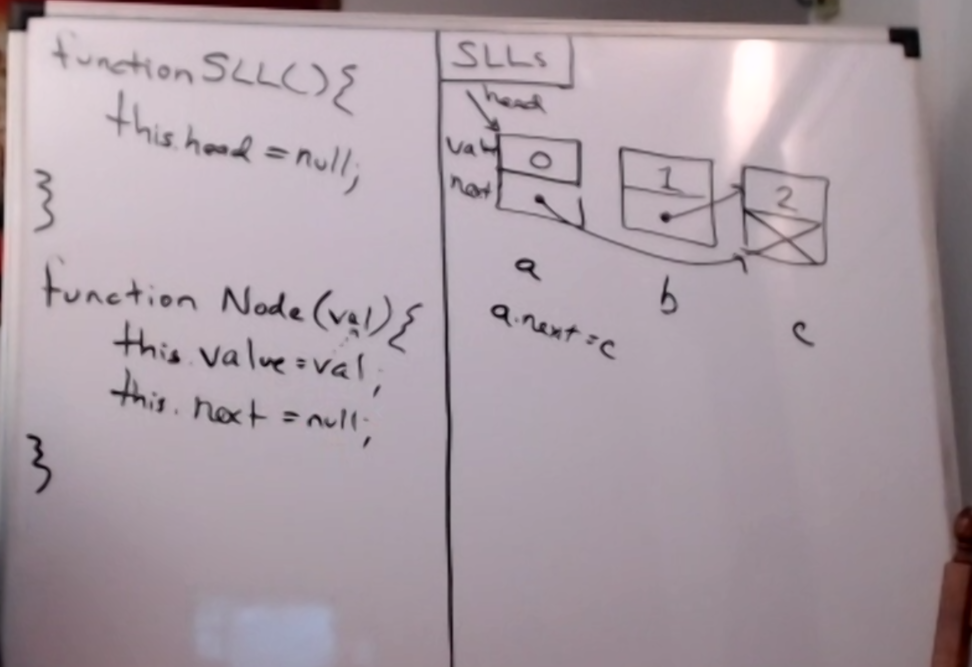 function SLL(){
this.head = null;
}
function Node(val){
this.value = val;
this.next = null;
}
SLLs
head
val
0
next
1
2
a
b
c
a.next = c